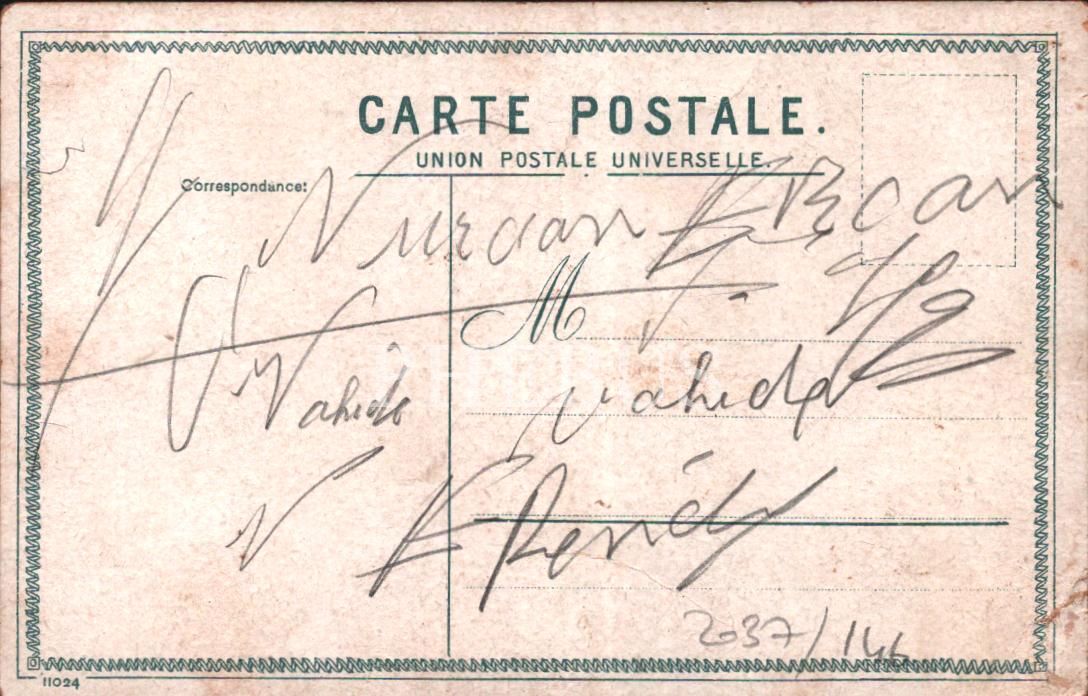 CARTE POSTALE.
UNION POSTALE UNIVERSELLE.
Correspondance:
Nurcan Ercan
M
Vahide Vahide
Efendi
2037/146
11024